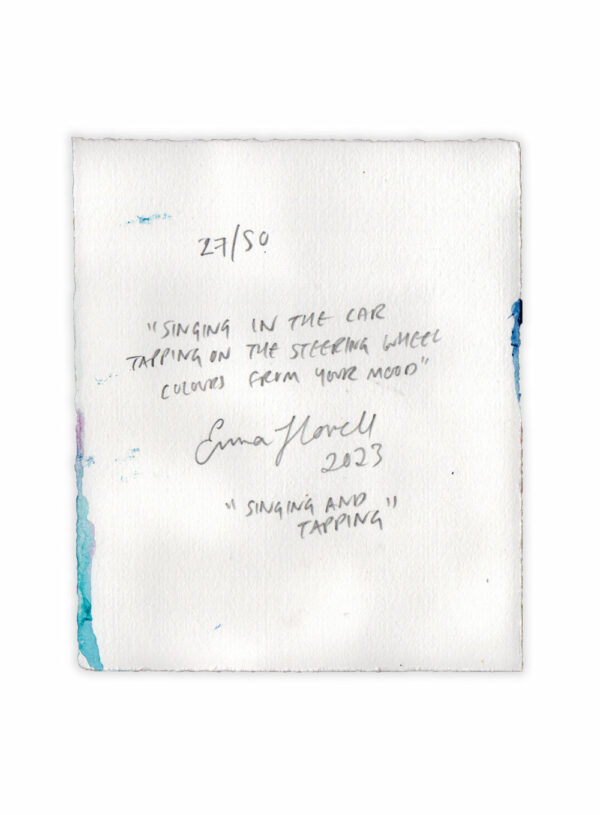 27/50
"SINGING IN THE CAR
TAPPING ON THE STEERING WHEEL
COLOURS FROM YOUR MOOD"
Emma Howell
2023
"SINGING AND
TAPPING"